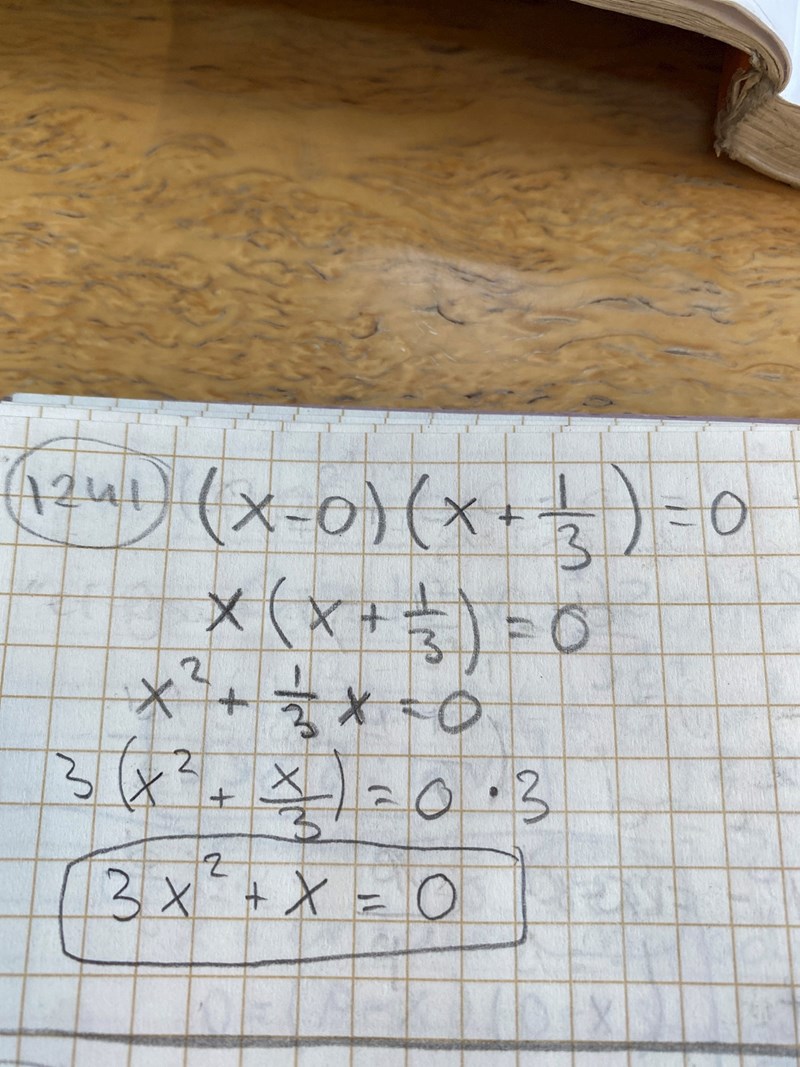 1241 (x-0)(x+1/3)=0
x(x+1/3)=0
x²+1/3x=0
3(x²+x/3)=0·3
3x²+x=0